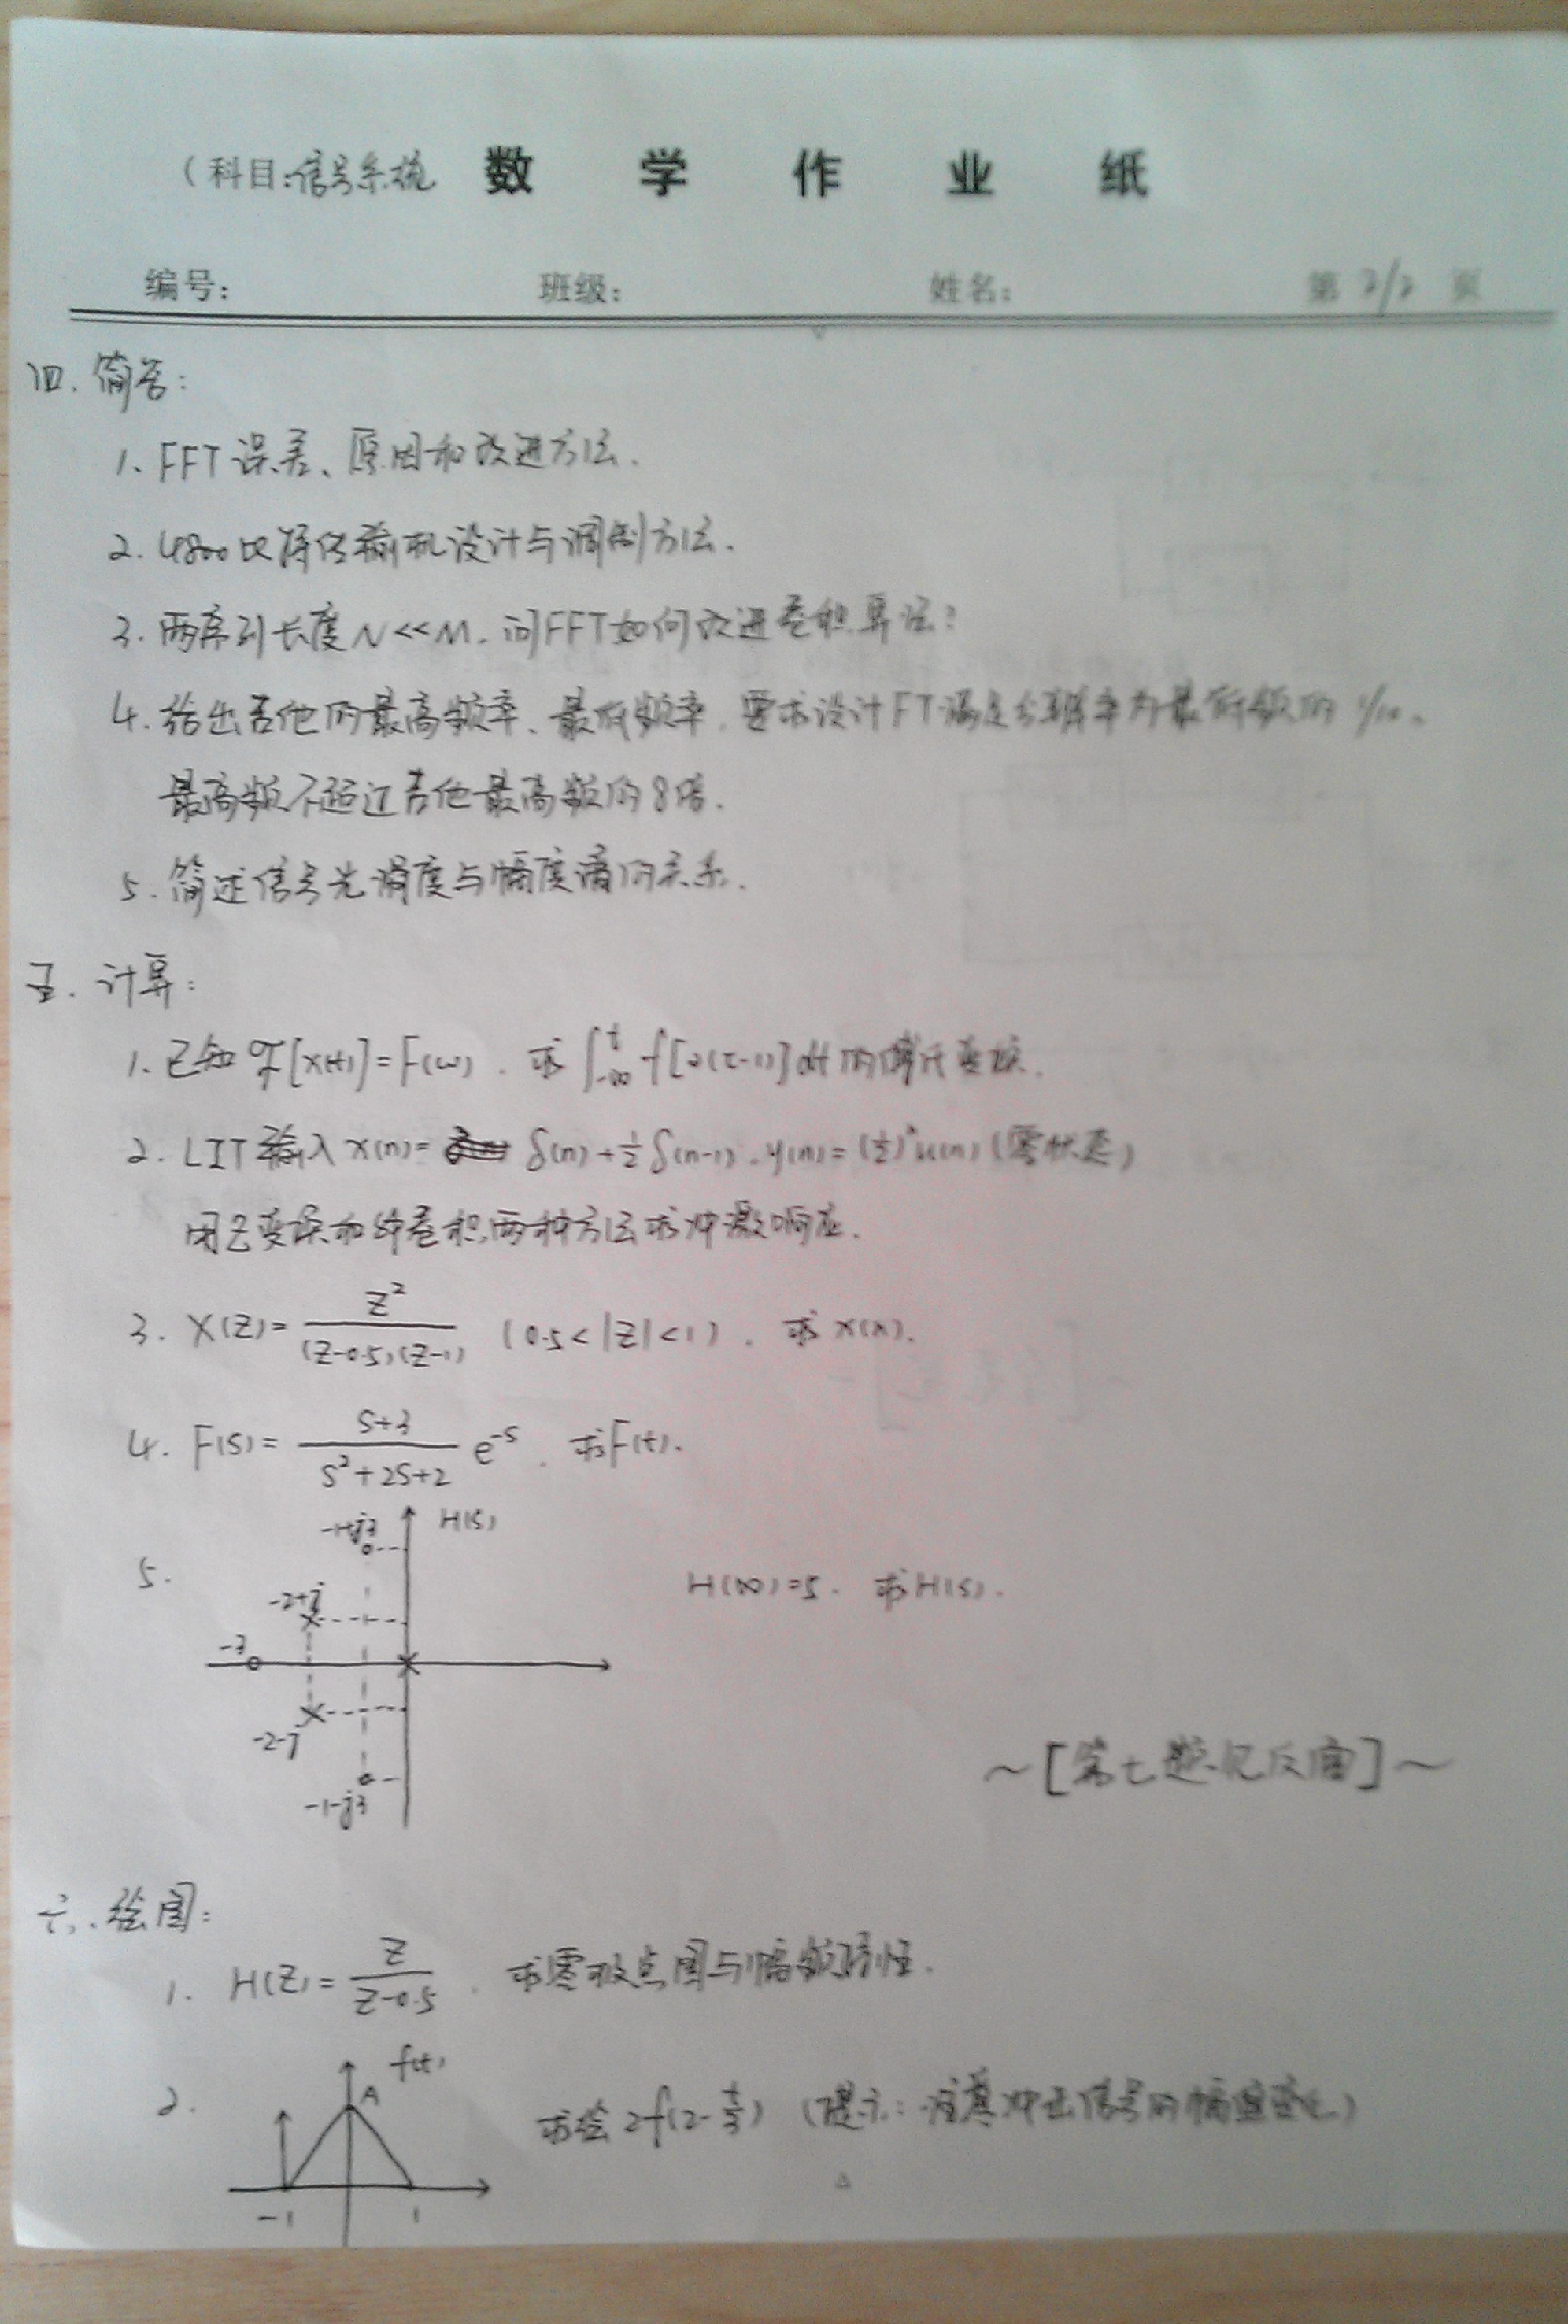 (科目:信号系统 数 学 作 业 纸
编号: 班级: 姓名: 第 2/2 页
四. 简答:
1. FFT 误差、原因和改进方法.
2. 4800比特传输机设计与调制方法.
3. 两序列长度N<<M. 问FFT如何改进卷积算法?
4. 给出吉他的最高频率、最低频率. 要求设计FT满足分辨率为最低频的 1/10、
最高频不超过吉他最高频的8倍.
5. 简述信号光滑度与幅度谱的关系.
五. 计算:
1. 已知 ℱ[x(t)]=F(ω). 求 ∫_{-∞}^{t} f[2(τ-1)]dt 的傅氏变换.
2. LIT 输入 x(n)= δ(n)+½δ(n-1). y(n)=(½)ⁿu(n) (零状态)
用Z变换和解卷积两种方法求冲激响应.
3. X(Z)= Z²/((Z-0.5)(Z-1)) (0.5<|Z|<1). 求 x(n).
4. F(s)= (s+3)/(s²+2s+2) e^{-s}. 求F(t).
5.
-1+j3 H(s)
-2+j
-3
-2-j
-1-j3
H(∞)=5. 求H(s).
~[第七题见反面]~
六. 绘图:
1. H(Z)= Z/(Z-0.5). 求零极点图与幅频特性.
2. f(t) A -1 1
求绘 2f(2-t/3) (提示: 注意冲击信号的幅度变化)